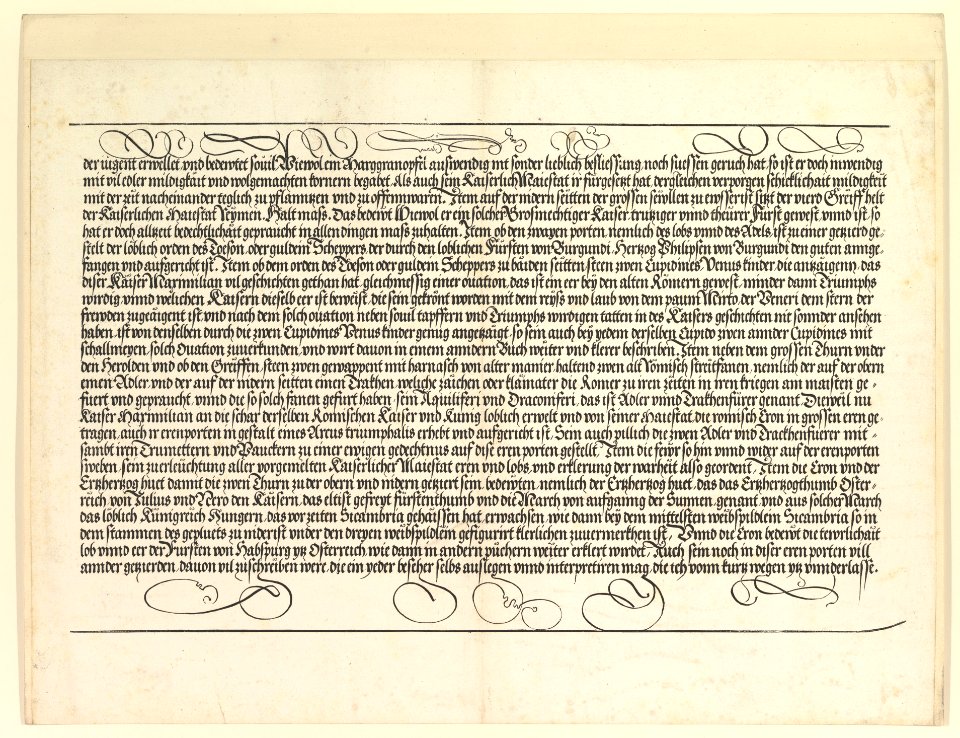 der tugent erwellet vnd bedewtet souil. Wiewol ein Marggranopfel auswendig mit sonder lieblich besliessung noch suessen geruch hat so ist er doch inwendig
mit vil edler mildigkait vnd wolgemachten kornern begabet. Als auch sein Kaiserlich Maiestat ir fürgesetzt hat, dergleichen verporgen schicklichait mildigkeit
mit der zeit nacheinander teglich zu pflanntzen vnd zu offennwarn. Item auf der mdern seitten der grossen sewllen zu ewsserist sitzt der vierd Greiff helt
der Kaiserlichen Maiestat Reymen. Halt mass. Das bedewt Wiewol er ein solcher Grosmechtiger Kaiser trutziger vnnd theurer Fürst gewest vnnd ist, so
hat er doch allzeit bedechtlichait gepraucht in allen dingen mass zuhalten. Item ob den zwayen porten, nemlich des lobs vnnd des Adels, ist zu einer getzierd ge=
stelt der löblich orden des Toeson, oder guldem Scheppers der durch den loblichen Fürsten von Burgundi, Hertzog Philipsen von Burgundi den guten annge=
fangen vnd aufgericht ist. Item ob dem orden des Toeson oder guldem Scheppers zu baiden seitten steen zwen Cupidines Venus kinder, die anzaigenn, das
diser Kaiser Maximilian vil geschichten gethan hat, gleichmessig einer ouation, das ist ein eer bey den alten Römern gewest, minder dann Triumphs
wirdig, vnnd welichen Kaisern dieselb eer ist beweist, die sein gekrönt worden mit dem reyss vnd laub von dem paum Mirto, der Veneri dem stern der
frewden zugeaigent ist, vnd nach dem solch ouation neben souil tapffern vnd Triumphs wirdigen tatten in des Kaisers geschichten nit sonnder ansehen
haben, ist von denselben durch die zwen Cupidines Venus kinder genug angetzaigt, so sein auch bey yedem derselben Cupido zwen annder Cupidines mit
schallmeyen, solch Ouation zuuerkunden, vnd wirt dauon in einem anndern Buch weiter vnd klerer beschriben. Item neben dem grossen Thurn vnder
den Herolden vnd ob den Greiffen, steen zwen gewappent mit harnasch von alter manier, haltend zwen alt Römisch streitfanen, nemlich der auf der obern
einen Adler vnd der auf der mdern seitten einen Trakhen, weliche zaichen oder klainater die Romer zu iren zeiten in iren kriegen am maisten ge=
fuert vnd gepraucht, vnnd die so solch fanen gefurt haben, sein Aquiliferi vnd Draconiferi, das ist Adler vnnd Trakhenfürer genant. Dieweil nu
Kaiser Maximilian an die schar derselben Romischen Kaiser vnd Kunig löblich erwelt vnd von seiner Maiestat die romisch Cron in grossen eren ge=
tragen, auch ir erenporten in gestalt eines Arcus triumphalis erhebt vnd aufgericht ist. Sein auch pillich die zwen Adler vnd Trackhenfuerer mit=
sambt iren Trumettern vnd Pauckern zu einer ewigen gedechtnus auf dise eren porten gestellt. Item die fewr so hin vnnd wider auf der erenporten
sweben, sein zuerleüchtung aller vorgemelten Kaiserlicher Maiestat eren vnd lobs, vnd erklerung der warheit also geordent. Item die Cron vnd der
Ertzhertzog huet damit die zwen Thurn zu der obern vnd mdern getziert sein, bedewten, nemlich der Ertzhertzog huet, das das Ertzhertzogthumb Oster=
reich von Julius vnd Nero den Kaisern, das eltist gefreyt fürstenthumb vnd die March von aufganng der Sunnen, genant, vnd aus solcher March
das löblich Künigreich Hungern, das vor zeiten Sicambria gehaissen hat, erwachsen, wie dann bey dem mittelsten weibspildlem Sicambria so in
dem stammen des gepluets zu mderist vnder den dreyen weibspildlem gefigurirt klerlichen zuuermerkhen ist. Vnnd die Cron bedewt die tewrlichait
lob vnnd eer der Fürsten von Habspurg ytz Osterreich, wie dann in andern püchern weiter erklert wirdet. Auch sein noch in diser eren porten vill
annder getzierden, dauon vil zuschreiben were, die ein yeder beseher selbs auslegen vnnd interpretiren mag, die ich vonn kurtz wegen ytz vnnderlasse.